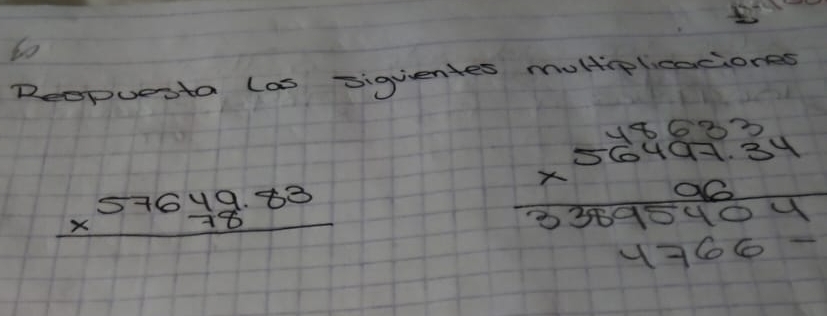 Respuesta Las siguientes multiplicaciones
57649.83
x 78
48633
x 56497.34
96
338954 04
4766 -